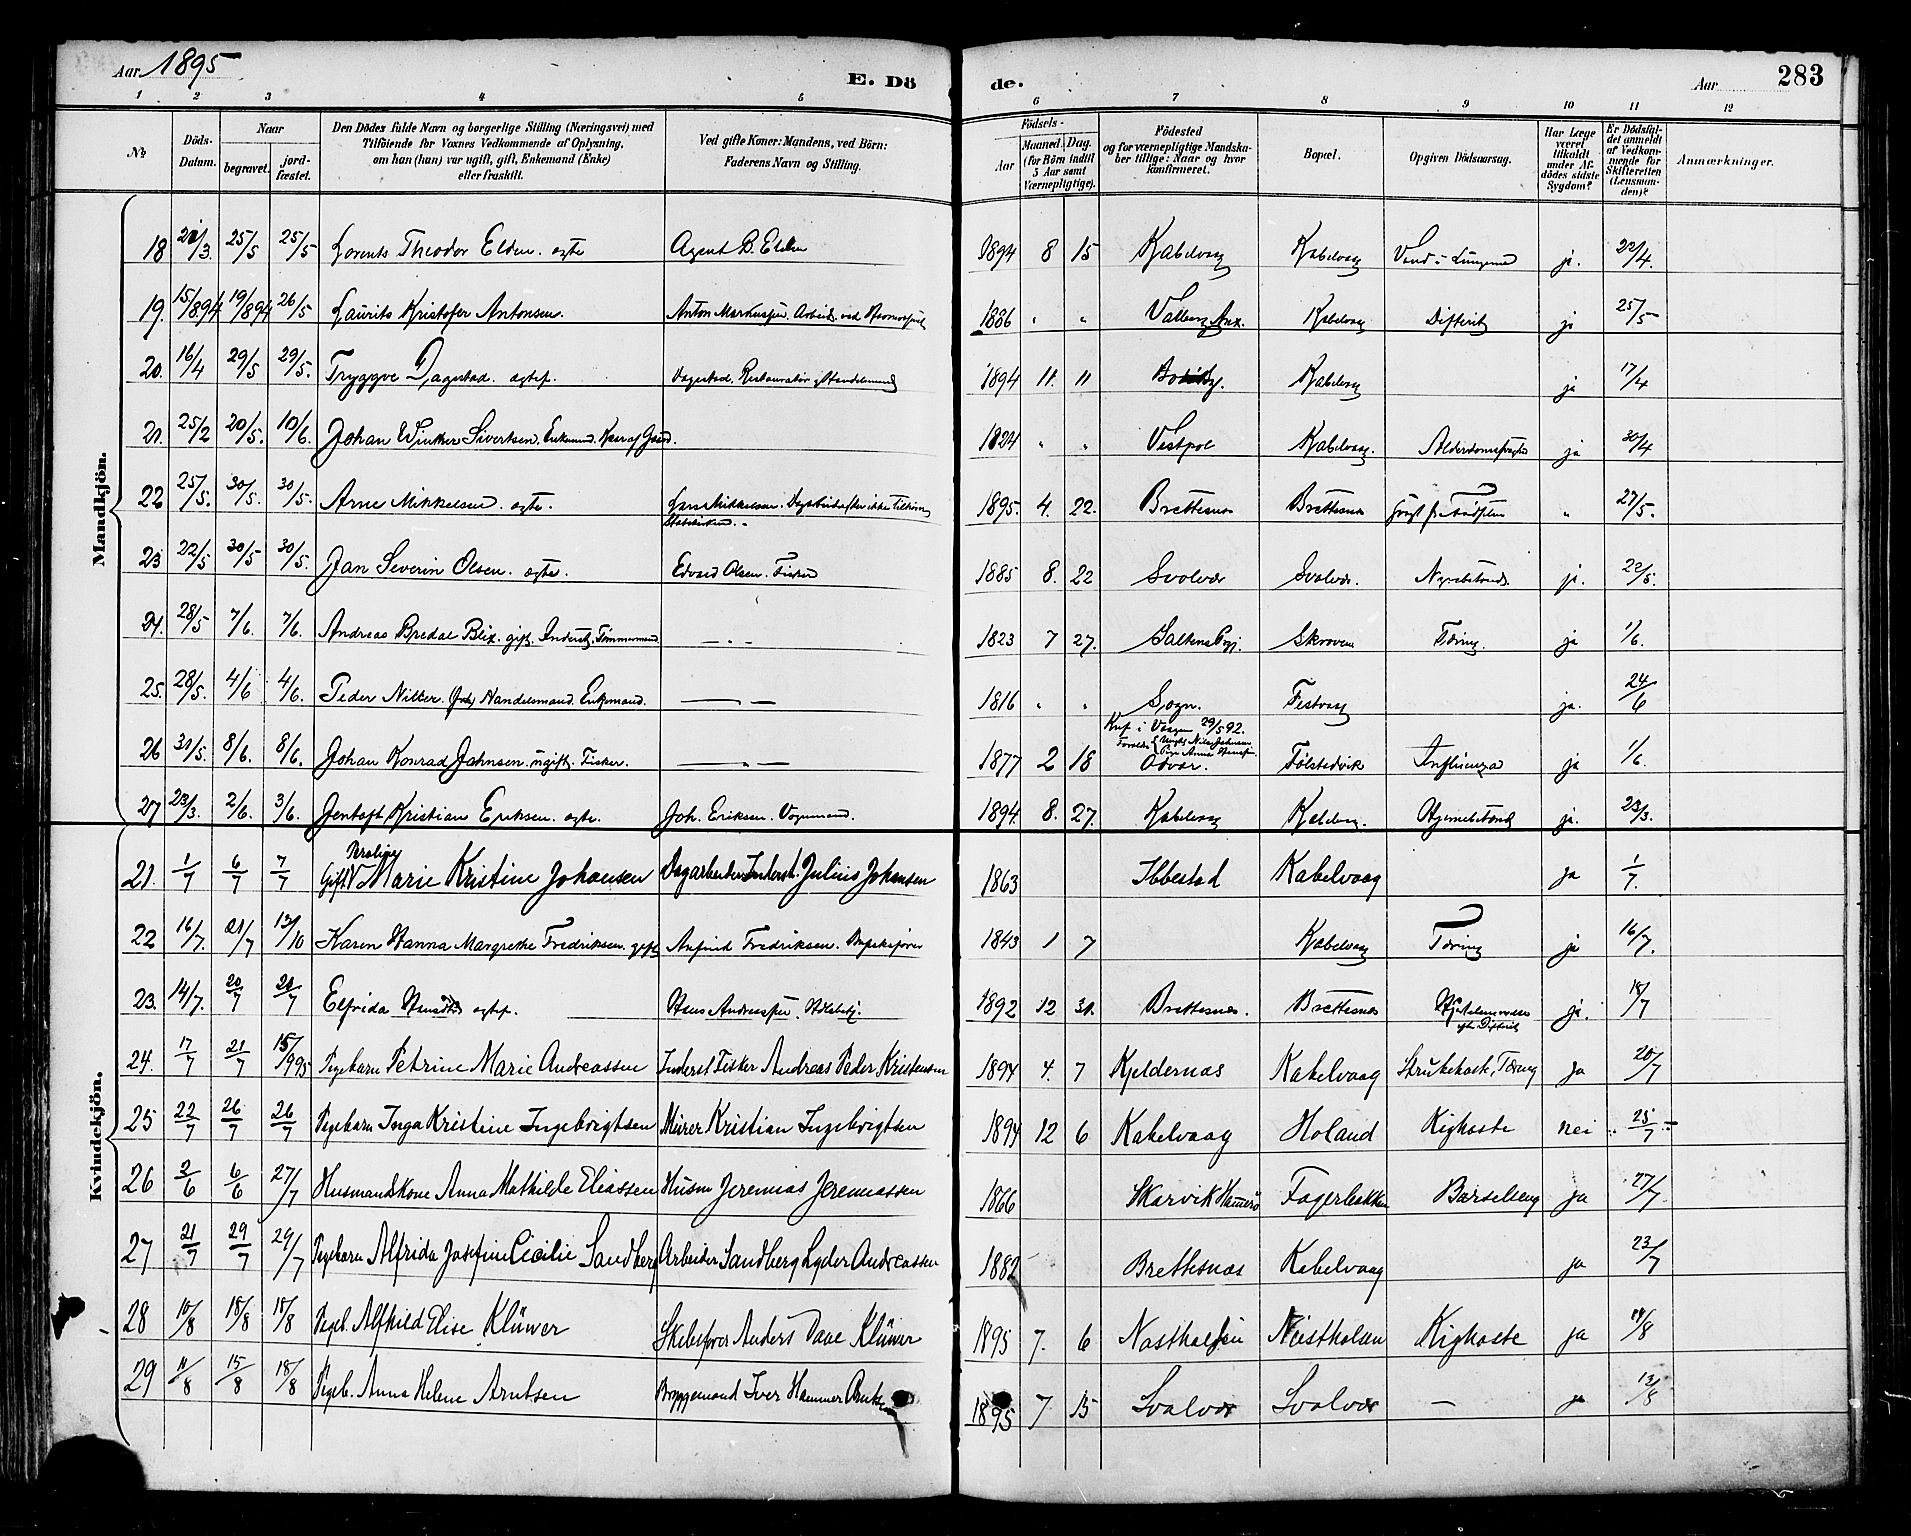 Aar 1895
E. Dö
de.
Aar
283
1 2 3 4 5 6 7 8 9 10 11 12
No
Döds-Datum.
Naar
begravet.
jord-fæstet.
Den Dödes fulde Navn og borgerlige Stilling (Næringsvei) med
Tilföiende for Voxnes Vedkommende af Oplysning,
om han (hun) var ugift, gift, Enkemand (Enke)
eller fraskilt.
Ved gifte Koner: Mandens, ved Börn:
Faderens Navn og Stilling.
Födsels-
Aar
Maaned. Dag.
(for Börn indtil
5 Aar samt
Værnepligtige).
Födested
og for værnepligtige Mandska-
ber tillige: Naar og hvor
konfirmeret.
Bopæl.
Opgiven Dödsaarsag.
Har Læge
været
tilkaldt
under Af-
dödes sidste
Sygdom?
Er Dödsfal-
det anmeldt
af Vedkom-
mende for
Skifteretten
(Lensman-
den)?
Anmærkninger.
Mandkjön.
18 25/5 25/5 Lorents Theodor Elden. ægte Agent B. Elden 1894 8 15 Kabelvaag Kabelvaag Vand i Lungerne ja. 22/4.
19. 15/894 19/894 26/5 Laurits Kristofer Antonsen. Anton 1886 " " Valberg Anx. Kabelvaag Difterit ja 25/5
20. 16/4 29/5 29/5. Tryggve Dagestad. ægtef. Dagestad. Restauratør 1894 11. 11 Kabelvaag ja 17/4
21. 25/2 20/5. 10/6. Johan Winther Sivertsen. Enkemand. 1824 " " Kabelvaag. ja 30/4
22 25/5. 30/5. 30/5. Arne Mikkelsen. ægte. Mikkelsen. 1895. 4. 22. Brettesnes Brettesnes " 27/5.
23 22/5 30/5 30/5. Jan Severin Olsen. ægte. Edvard Olsen. Fisker 1885 8. 22 Svolvær Svolvær. ja. 22/5.
24. 28/5 7/6. 7/6. Andreas Bredal Blix. gift. Inderst, Tømmermand — " — 1823 7 27. Skroven Tæring. ja 1/6.
25. 28/5. 4/6 4/6. Peder Nilter. Handelsmand. Enkemand. — — 1816 " " Sogn. Festvaag ja. 24/6
Knf. i Vaagan 29/5 92.
26 31/5. 8/6. 8/6. Johan Konrad Jahnsen. ugift. Fisker. — " — 1877 2 18 Odvær. Følstadvik Influenza ja 1/6.
27 23/3. 2/6. 3/6. Jentoft Kristian Eriksen. ægte. Joh. Eriksen. Vognmand. 1894. 8. 27. Kabelvaag Kabelvaag. ja. 23/3.
Kvindekjön.
21. 1/7 6/7 7/7 Gift Marie Kristine Johansen Dagarbeider Inderst. Julius Johansen 1863 Ibbestad Kabelvaag ja 1/7.
22 16/7. 21/7 13/10 Karen Hanna Margrethe Fredriksen. gift Arfind Fredriksen. 1843 1 7 Kabelvaag Tæring ja 16/7.
23. 14/7. 20/7 20/7 Elfrida ægtef. Hans 1892 12 31. Brettesnes. Brettesnes efter Difterit ja. 18/7
24. 17/7 21/7 15/995 Pigebarn Petrine Marie Andreassen Inderst Fisker Andreas Peder Kristensen 1894 4. 7 Kjeldernas Kabelvaag Strubehoste, Tæring ja 20/7
25 22/7 26/7 26/7 Pigebarn Inga Kristine Ingebrigtsen Murer Kristian Ingebrigtsen 1894 12 6 Kabelvaag Holand Kighoste nei 25/7
26 2/6 6/6 27/7 Husmandskone Anna Mathilde Eliassen Husm Jeremias Jeremiassen 1866 Skarvik Hamerø Fagerbakken Barselseng ja 27/7.
27 21/7 29/7 29/7 Pigebarn Alfrida Josefine Cicilie Sandberg Arbeider Sandberg Lyder Andreassen 1882 Brettesnas Kabelvaag ja 23/7
28 10/8 18/8 18/8 Pigeb. Alfhild Elise Klüwer Skibsfører Anders Daae Klüwer 1895 7. 6 Kighoste ja 14/8
29 11/8 15/8 18/8 Pigeb. Anna Helene Arntsen Bryggemand Iver Hammer 1895 7 15 Svolvær Svolvær — ja 13/8